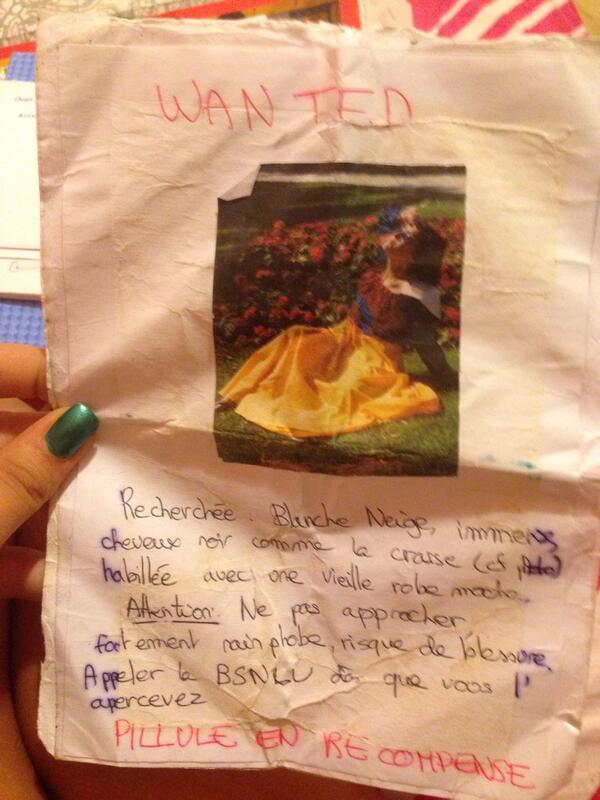 WANTED
Recherchée. Blanche Neige, immense,
cheveux noir comme la crasse (cf photo)
habillée avec une vieille robe moche.
Attention. Ne pas approcher
fortement nain phobe, risque de blessure.
Appeler la BSNLU dès que vous l'
apercevez
PILLULE EN RECOMPENSE